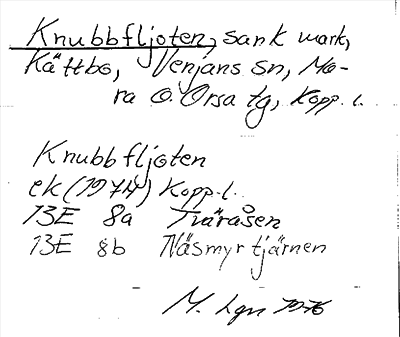 Knubbfljoten, sank mark,
Kättbo, Venjans sn, Mo-
ra o. Orsa tg, Kopp. l.
Knubbfljoten
ek (1974) Kopp. l.
13E 8a Tväråsen
13E 8b Näsmyrtjärnen
M. Lgn 1976